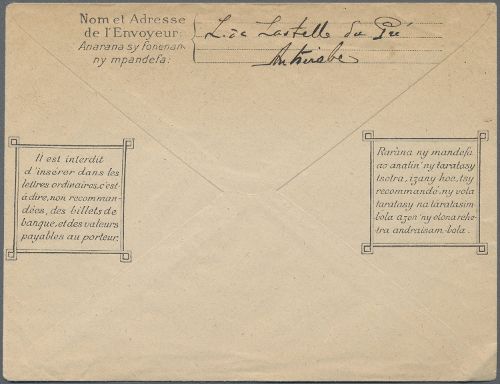 Nom et Adresse
de l'Envoyeur
Anarana sy fonenan
ny mpandefa:
Lastelle du Pré
Antsirabe
Il est interdit
d'insérer dans les
lettres ordinaires, c'est-
à dire, non recomman-
dées, des billets de
banque, et des valeurs
payables au porteur.
Rarana ny mandefa
ao anatin' ny taratasy
tsotra, izany hoe, tsy
recommandé, ny vola
taratasy na taratasim-
bola azon' ny olona rehe-
tra andraisam-bola.